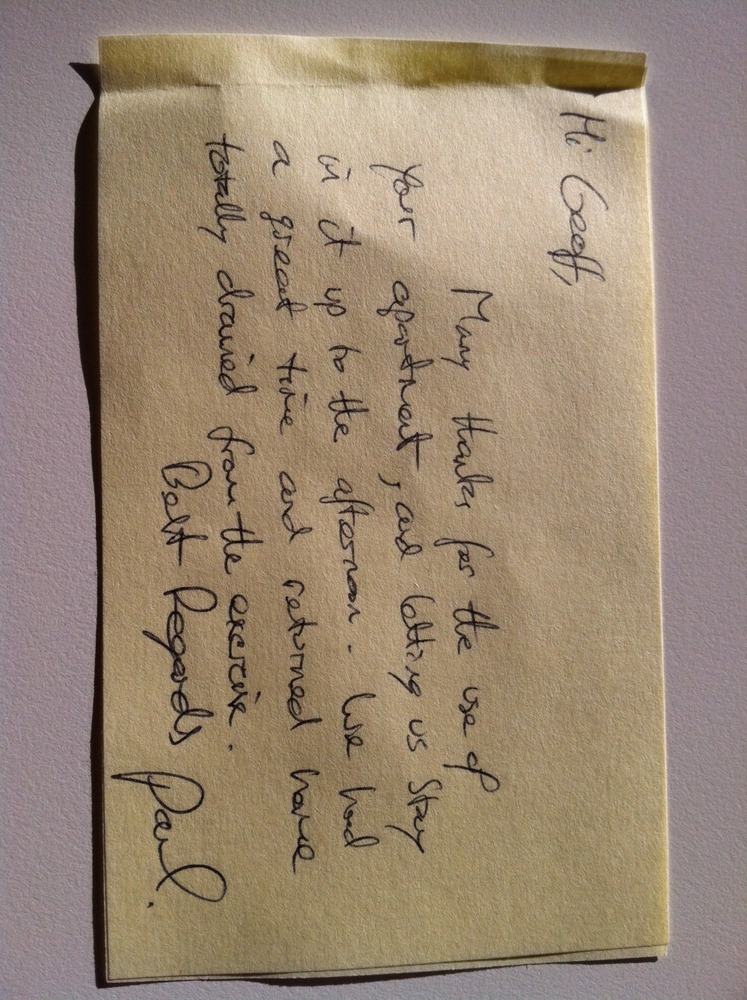 Hi Geoff,
Many thanks for the use of
your apartment, and letting us stay
in it up to the afternoon. We had
a great time and returned home
totally drained from the exercise.
Best Regards
Paul.